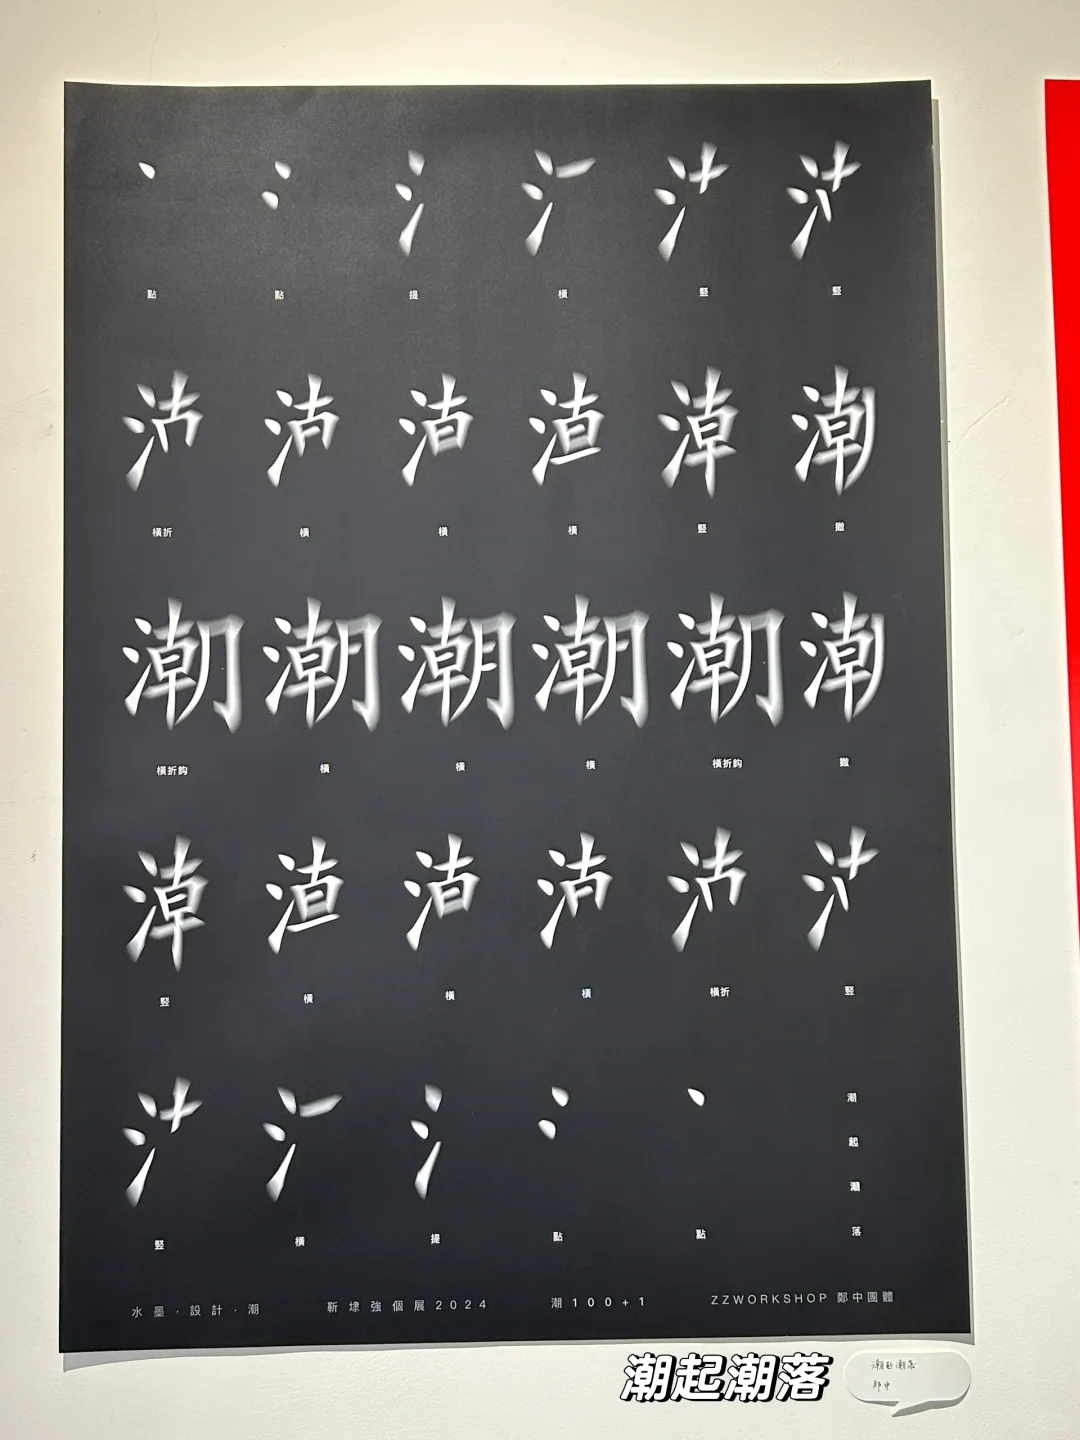 點 點 提 橫 豎 豎
橫折 橫 橫 橫 豎 撇
潮
橫折鈎 橫 橫 橫 橫折鈎 撇
豎 橫 橫 橫 橫折 豎
豎 橫 提 點 點
潮
起
潮
落
水墨·設計·潮 靳埭強個展2024 潮100+1 ZZWORKSHOP 鄭中團體
潮起潮落
潮起潮落
郑中